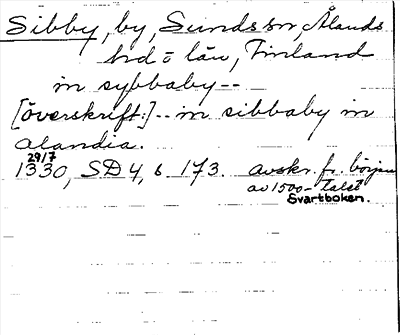 Sibby, by, Sunds sn, Ålands
hd o län, Finland
in sybbaby--
[överskrift:]--in sibbaby in
alandia.
29/7
1330, SD 4, s 173. avskr. fr. början
av 1500-talet
Svartboken.